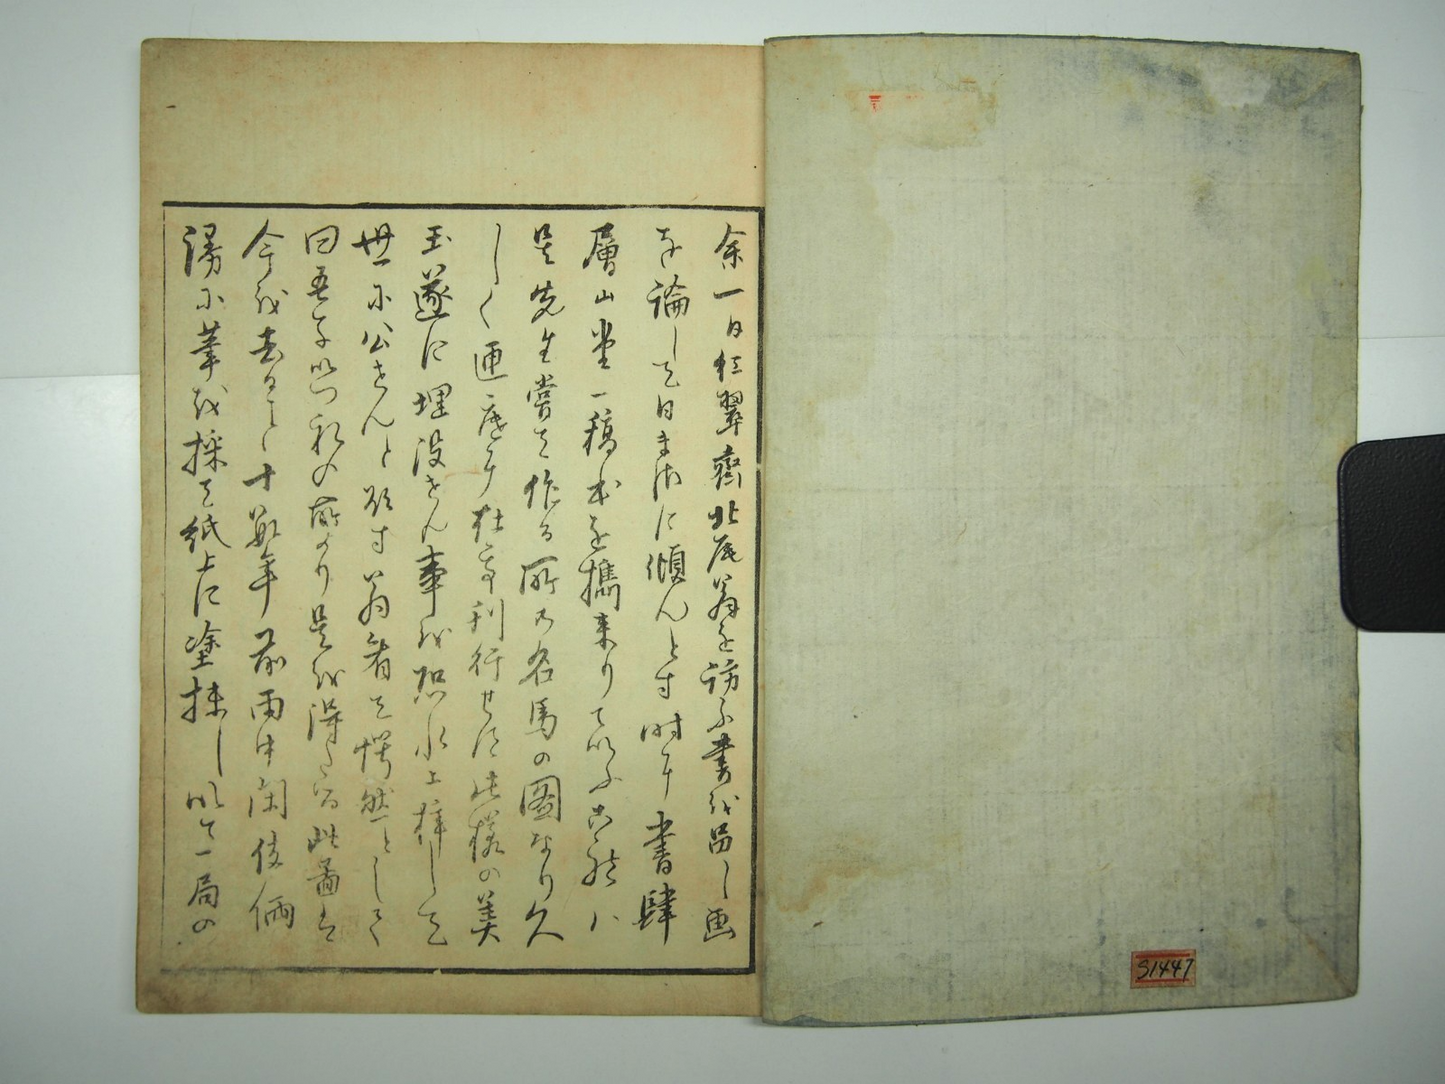 余一日紅翠齋北尾翁を訪ふ書を品し画
を論して日まさに傾んとす時に書肆
層山堂一稿本を携来りていふこれハ
是先生嘗て作る所の名馬の図なり久
しく匣底に在て刊行せす此様の美
玉遂に埋没せん事を恐れ上梓して
世に公せんと欲す翁看て愕然として
曰吾子いつれの所より是を得たる此畫は
今を去こと十数年前雨中閑伎倆
謾に筆を採て紙上に塗抹し以て一局の
S1447